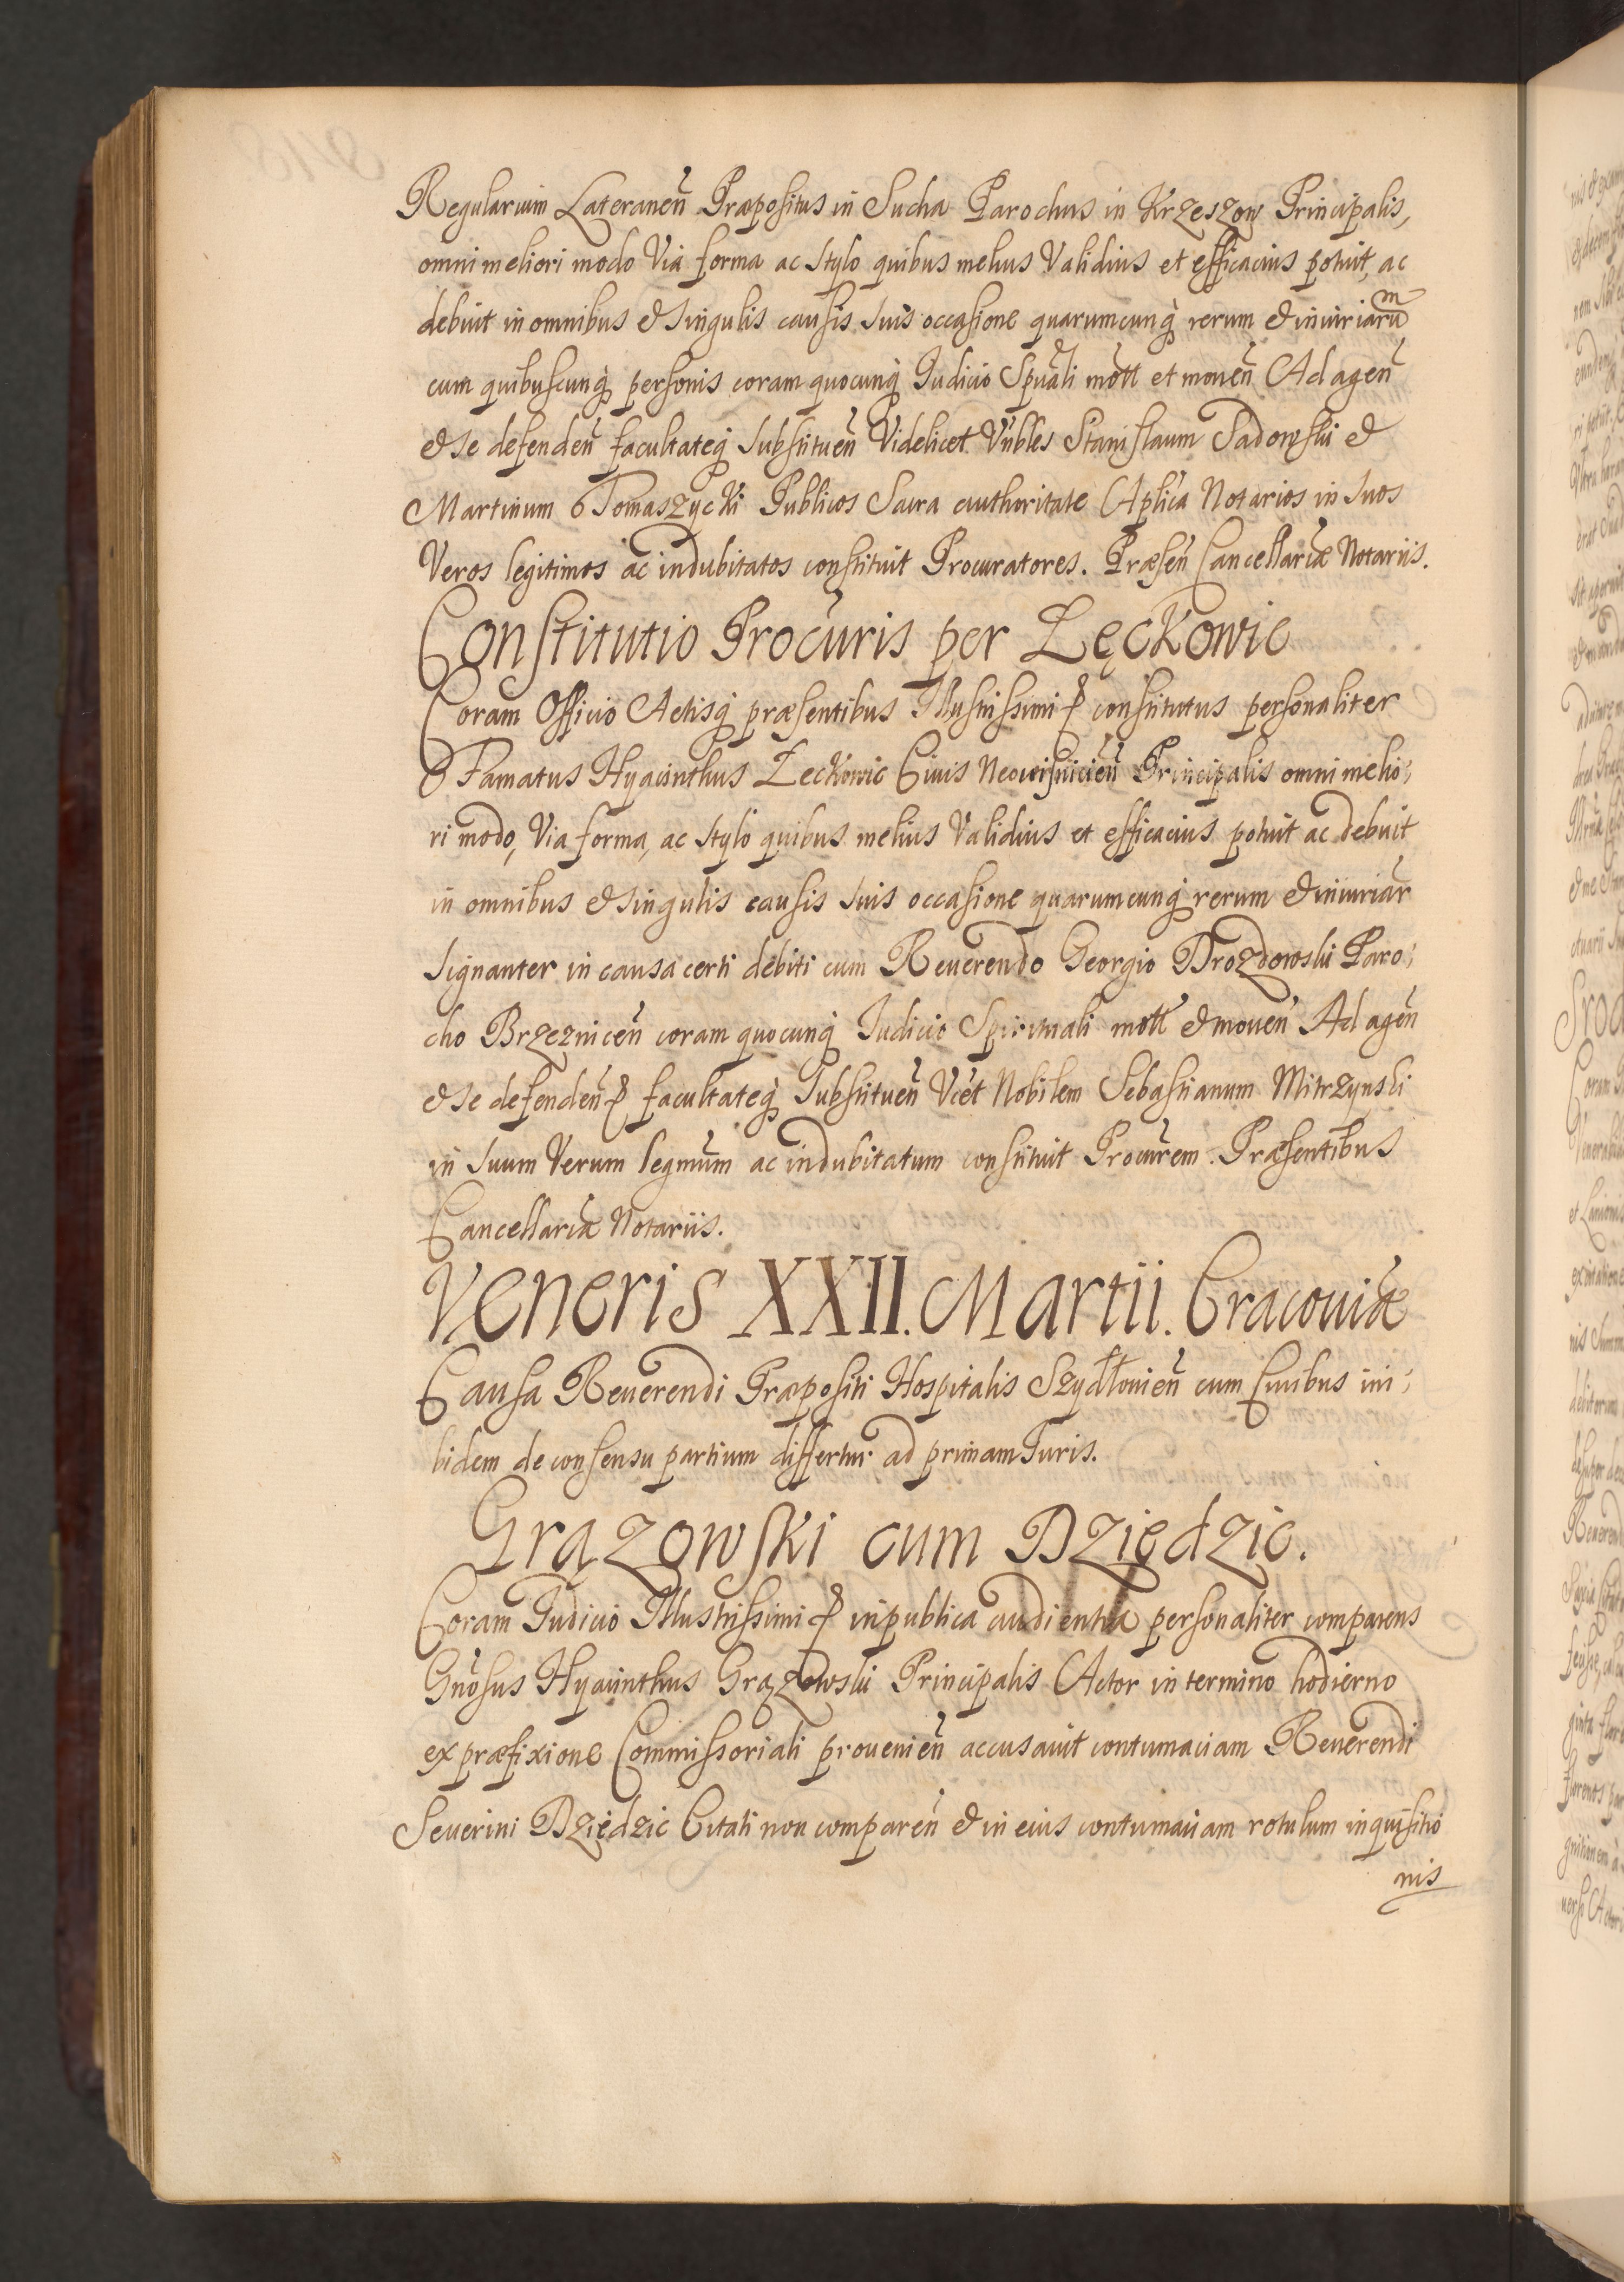 Regularium Lateraneñ Præpositus in Sucha Parochus in Krzeszow Principalis,
omni meliori modo Via forma ac stylo quibus melius Validius et efficacius potuit, ac
debuit in omnibus & singulis causis suis occasione quarumcunq́ rerum & iniuriarũm
cum quibuscunq́ personis coram quocunq́ Judicio Spuãli mott et moueñ Ad ageñ
& se defendeñ facultateq́ substitueñ Videlicet Vnbles Stanislaum Sadowski &
Martinum Tomaszycki Publicos Sacra authoritate Aplica Notarios in suos
Veros legitimos ac indubitatos constituit Procuratores. Præseñ Cancellariæ Notariis.
Constitutio Procuris per Lęckowic
Coram Officio Actisq́ præsentibus Illustrissimi & constitutus personaliter
Famatus Hyacinthus Lęckowic Ciuis Neowisnicieñ Principalis omni melio:
ri modo, Via forma, ac stylo quibus melius Validius et efficacius potuit ac debuit
in omnibus & singulis causis suis occasione quarumcunq́ rerum & iniuriar
signanter in causa certi debiti cum Reuerendo Georgio Drozdowski Paro:
cho Brzezniceñ coram quocunq́ Judicio Spirituali mott & moueñ Ad ageñ
& se defendeñ & facultateq́ substitueñ Vcet Nobilem Sebastianum Mitrzynski
in suum Verum legmum ac indubitatum constituit Procurem. Præsentibus
Cancellariæ Notariis.
Veneris XXII. Martii. Cracouiæ
Causa Reuerendi Præpositi Hospitalis Szydłouieñ cum Ciuibus ini:
bidem de consensu partium differtur ad primam Juris.
Grązowski cum Dzięedzic.
Coram Judicio Illustrissimi & in publica audientia personaliter comparens
Gnosus Hyacinthus Grązowski Principalis Actor in termino hodierno
ex præfixione Commissoriali prouenieñ accusauit contumaciam Reuerendi
Seuerini Dziędzic Citati non compareñ & in eius contumaciam rotulum inquisitio
nis